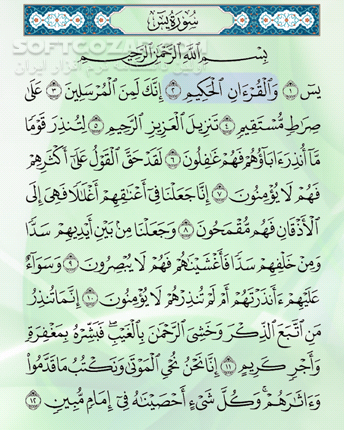 سُورَةُ يسٓ
SOFTGOZAR
بِسْمِ ٱللَّهِ ٱلرَّحْمَٰنِ ٱلرَّحِيمِ
يسٓ ١ وَٱلْقُرْءَانِ ٱلْحَكِيمِ ٢ إِنَّكَ لَمِنَ ٱلْمُرْسَلِينَ ٣ عَلَىٰ
صِرَٰطٍ مُّسْتَقِيمٍ ٤ تَنزِيلَ ٱلْعَزِيزِ ٱلرَّحِيمِ ٥ لِتُنذِرَ قَوْمًا
مَّآ أُنذِرَ ءَابَآؤُهُمْ فَهُمْ غَٰفِلُونَ ٦ لَقَدْ حَقَّ ٱلْقَوْلُ عَلَىٰٓ أَكْثَرِهِمْ
فَهُمْ لَا يُؤْمِنُونَ ٧ إِنَّا جَعَلْنَا فِىٓ أَعْنَٰقِهِمْ أَغْلَٰلًا فَهِىَ إِلَى
ٱلْأَذْقَانِ فَهُم مُّقْمَحُونَ ٨ وَجَعَلْنَا مِنۢ بَيْنِ أَيْدِيهِمْ سَدًّا
وَمِنْ خَلْفِهِمْ سَدًّا فَأَغْشَيْنَٰهُمْ فَهُمْ لَا يُبْصِرُونَ ٩ وَسَوَآءٌ
عَلَيْهِمْ ءَأَنذَرْتَهُمْ أَمْ لَمْ تُنذِرْهُمْ لَا يُؤْمِنُونَ ١٠ إِنَّمَا تُنذِرُ
مَنِ ٱتَّبَعَ ٱلذِّكْرَ وَخَشِىَ ٱلرَّحْمَٰنَ بِٱلْغَيْبِ ۖ فَبَشِّرْهُ بِمَغْفِرَةٍ
وَأَجْرٍ كَرِيمٍ ١١ إِنَّا نَحْنُ نُحْىِ ٱلْمَوْتَىٰ وَنَكْتُبُ مَا قَدَّمُوا۟
وَءَاثَٰرَهُمْ ۚ وَكُلَّ شَىْءٍ أَحْصَيْنَٰهُ فِىٓ إِمَامٍ مُّبِينٍ ١٢